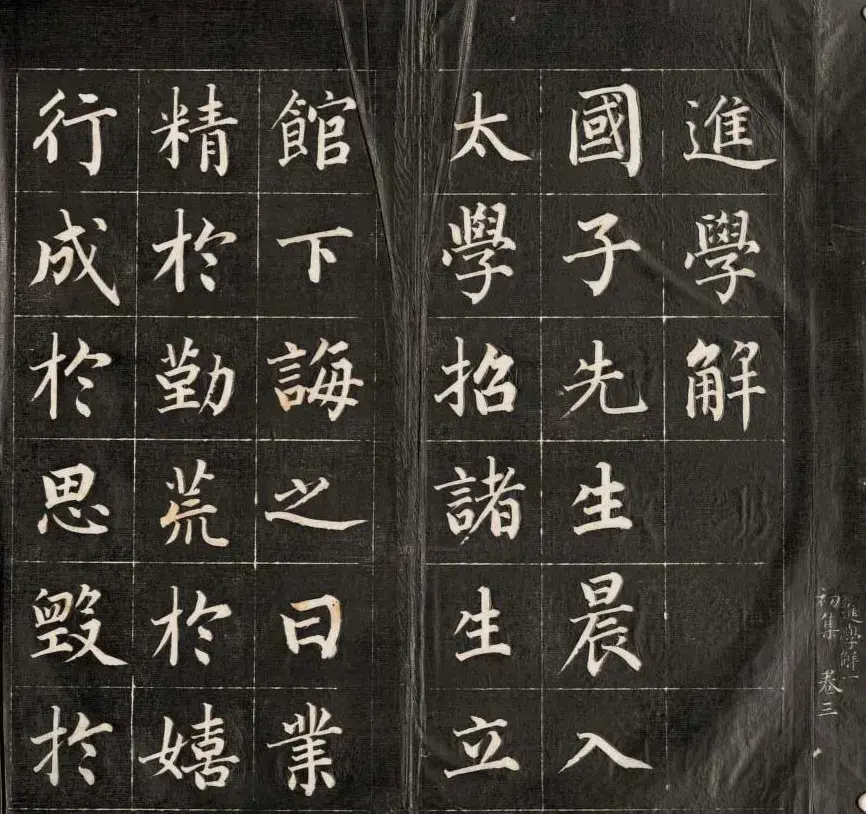 進學解
國子先生晨入
太學招諸生立
館下誨之曰業
精於勤荒於嬉
行成於思毀於
進學解一
初集 卷三